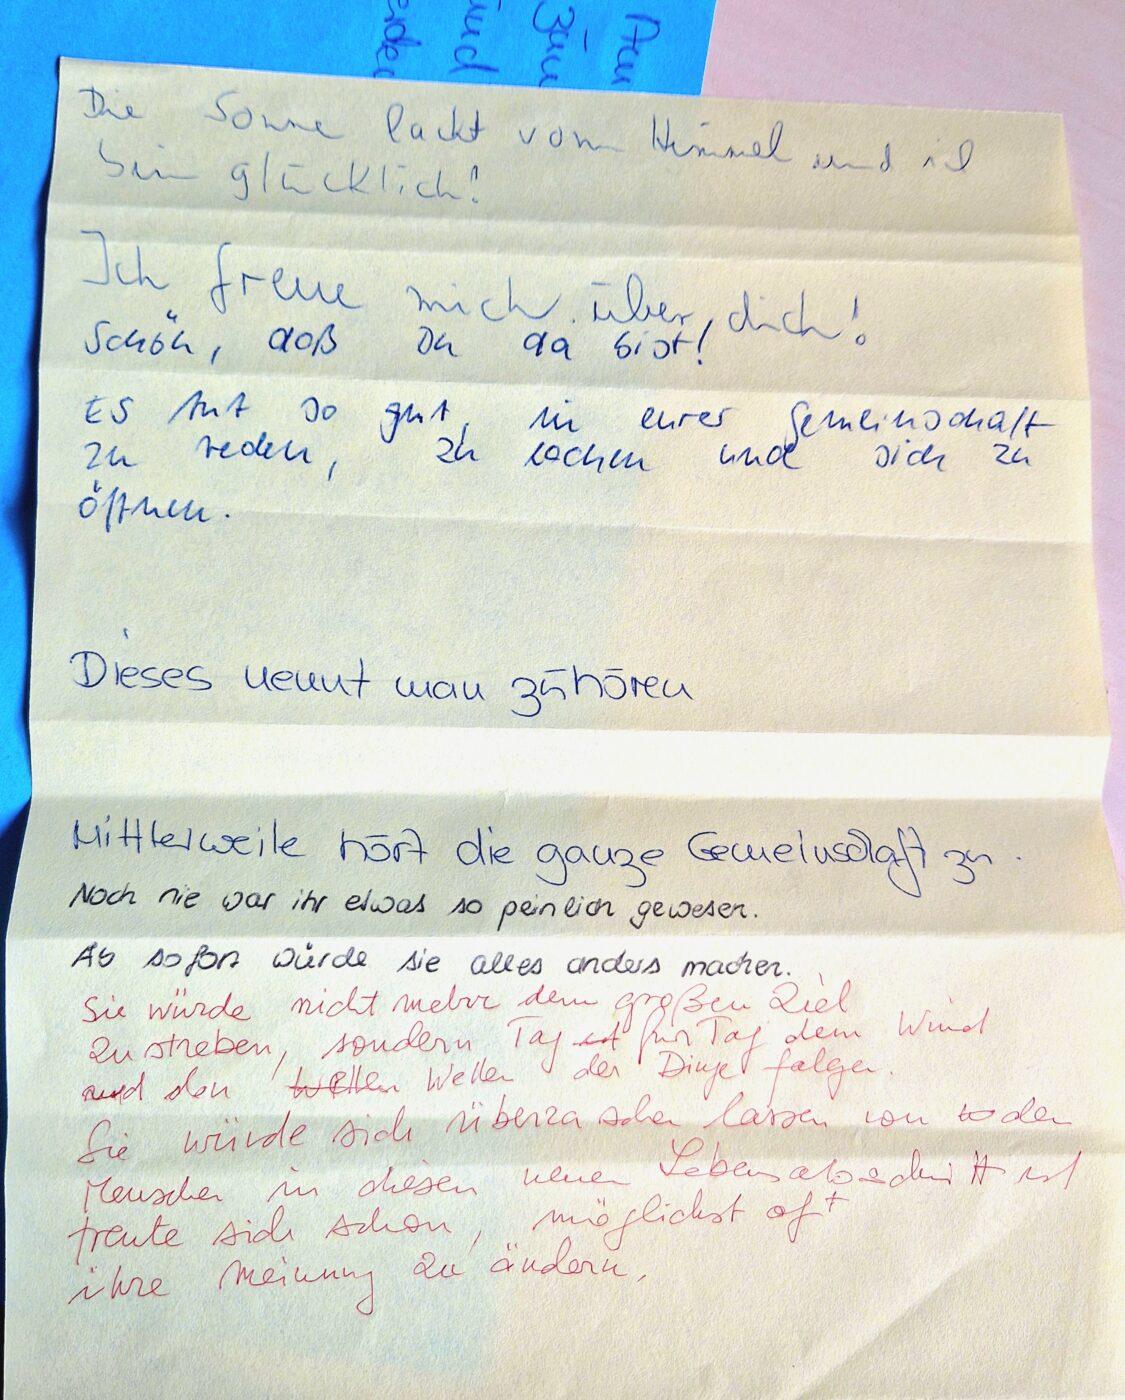 Die Sonne lacht vom Himmel und ich
bin glücklich!
Ich freue mich über dich!
Schön, daß Du da bist!
Es tut so gut, in eurer Gemeinschaft
zu reden, zu lachen und sich zu
öffnen.
Dieses nennt man zuhören
Mittlerweile hört die ganze Gemeinschaft zu.
Noch nie war ihr etwas so peinlich gewesen.
Ab sofort würde sie alles anders machen.
Sie würde nicht mehr dem großen Ziel
zustreben, sondern Tag für Tag dem Wind
und den Wellen der Dinge folgen.
Sie würde sich überraschen lassen von den
Menschen in diesem neuen Lebensabschnitt
freute sich schon, möglichst oft
ihre Meinung zu ändern.